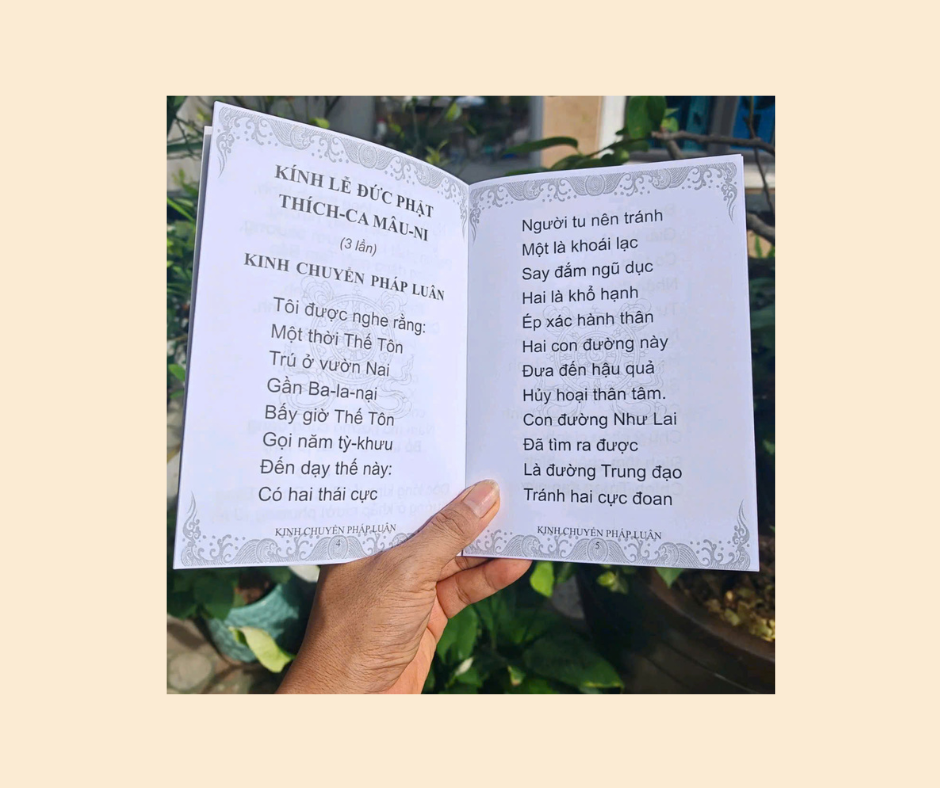 KÍNH LỄ ĐỨC PHẬT
THÍCH-CA MÂU-NI
(3 lần)
KINH CHUYỂN PHÁP LUÂN
Tôi được nghe rằng:
Một thời Thế Tôn
Trú ở vườn Nai
Gần Ba-la-nại
Bấy giờ Thế Tôn
Gọi năm tỳ-khưu
Đến dạy thế này:
Có hai thái cực
KINH CHUYỂN PHÁP LUÂN
4
Người tu nên tránh
Một là khoái lạc
Say đắm ngũ dục
Hai là khổ hạnh
Ép xác hành thân
Hai con đường này
Đưa đến hậu quả
Hủy hoại thân tâm.
Con đường Như Lai
Đã tìm ra được
Là đường Trung đạo
Tránh hai cực đoan
KINH CHUYỂN PHÁP LUÂN
5